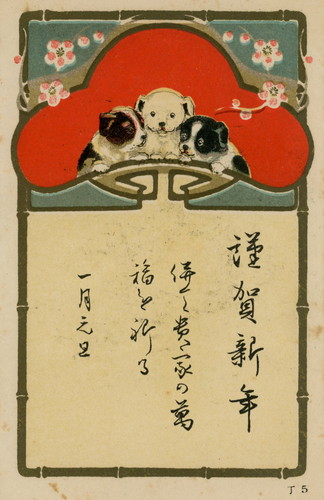 謹賀新年
併て貴家の萬
福を祈る
一月元旦
T 5